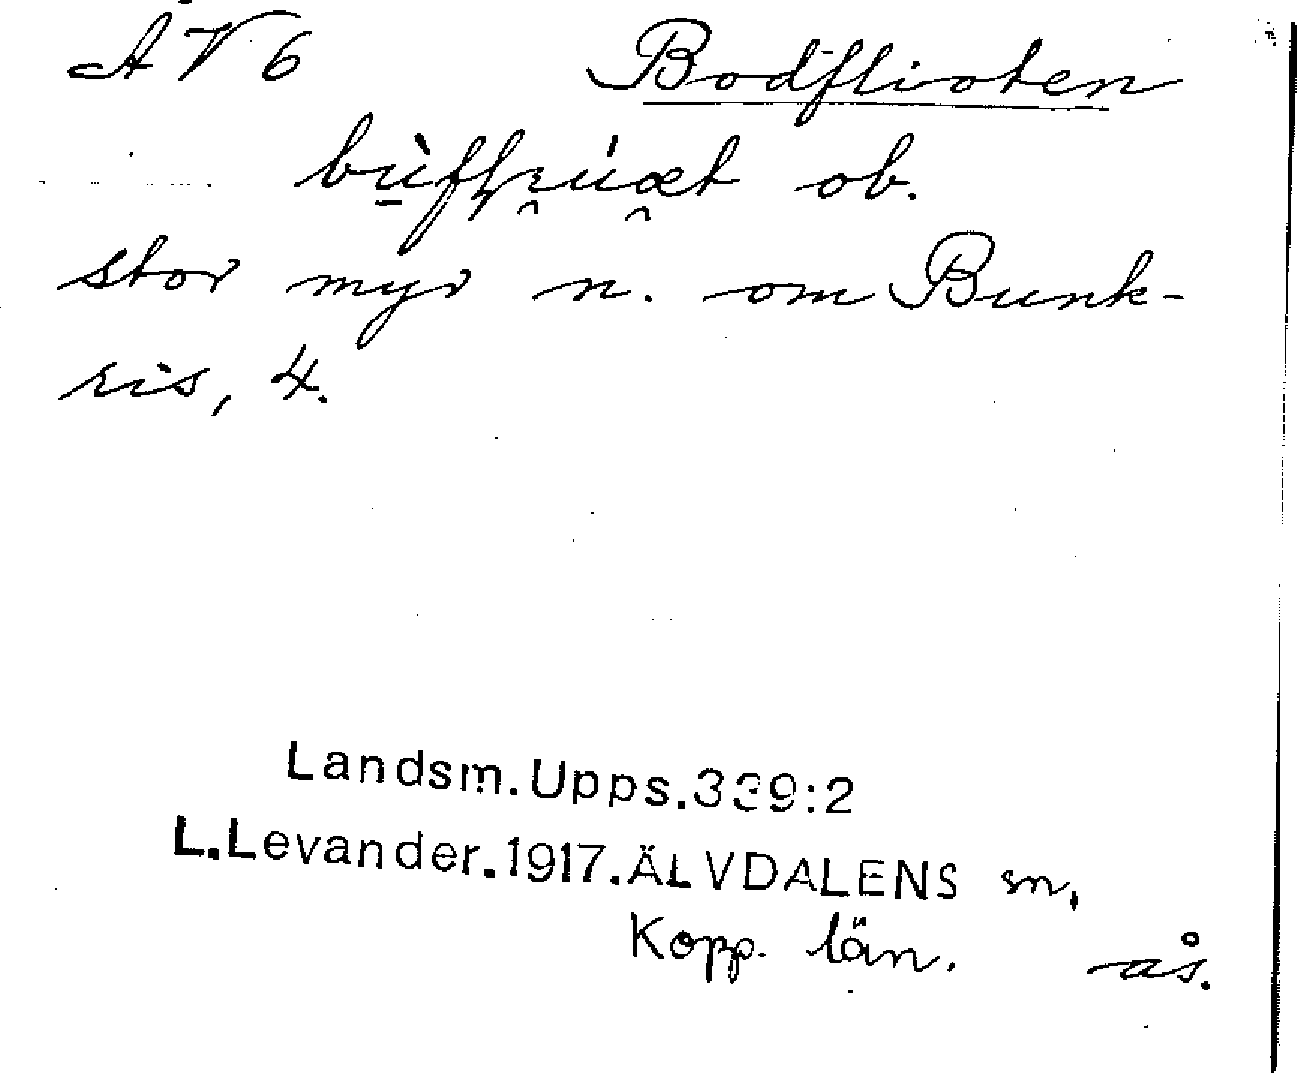 ÅV 6 Bodflioten
ob.
stor myr n. om Bunk-
ris, 4.
Landsm.Upps.339:2
L.Levander.1917.ÄLVDALENS sn,
Kopp. län. ås.